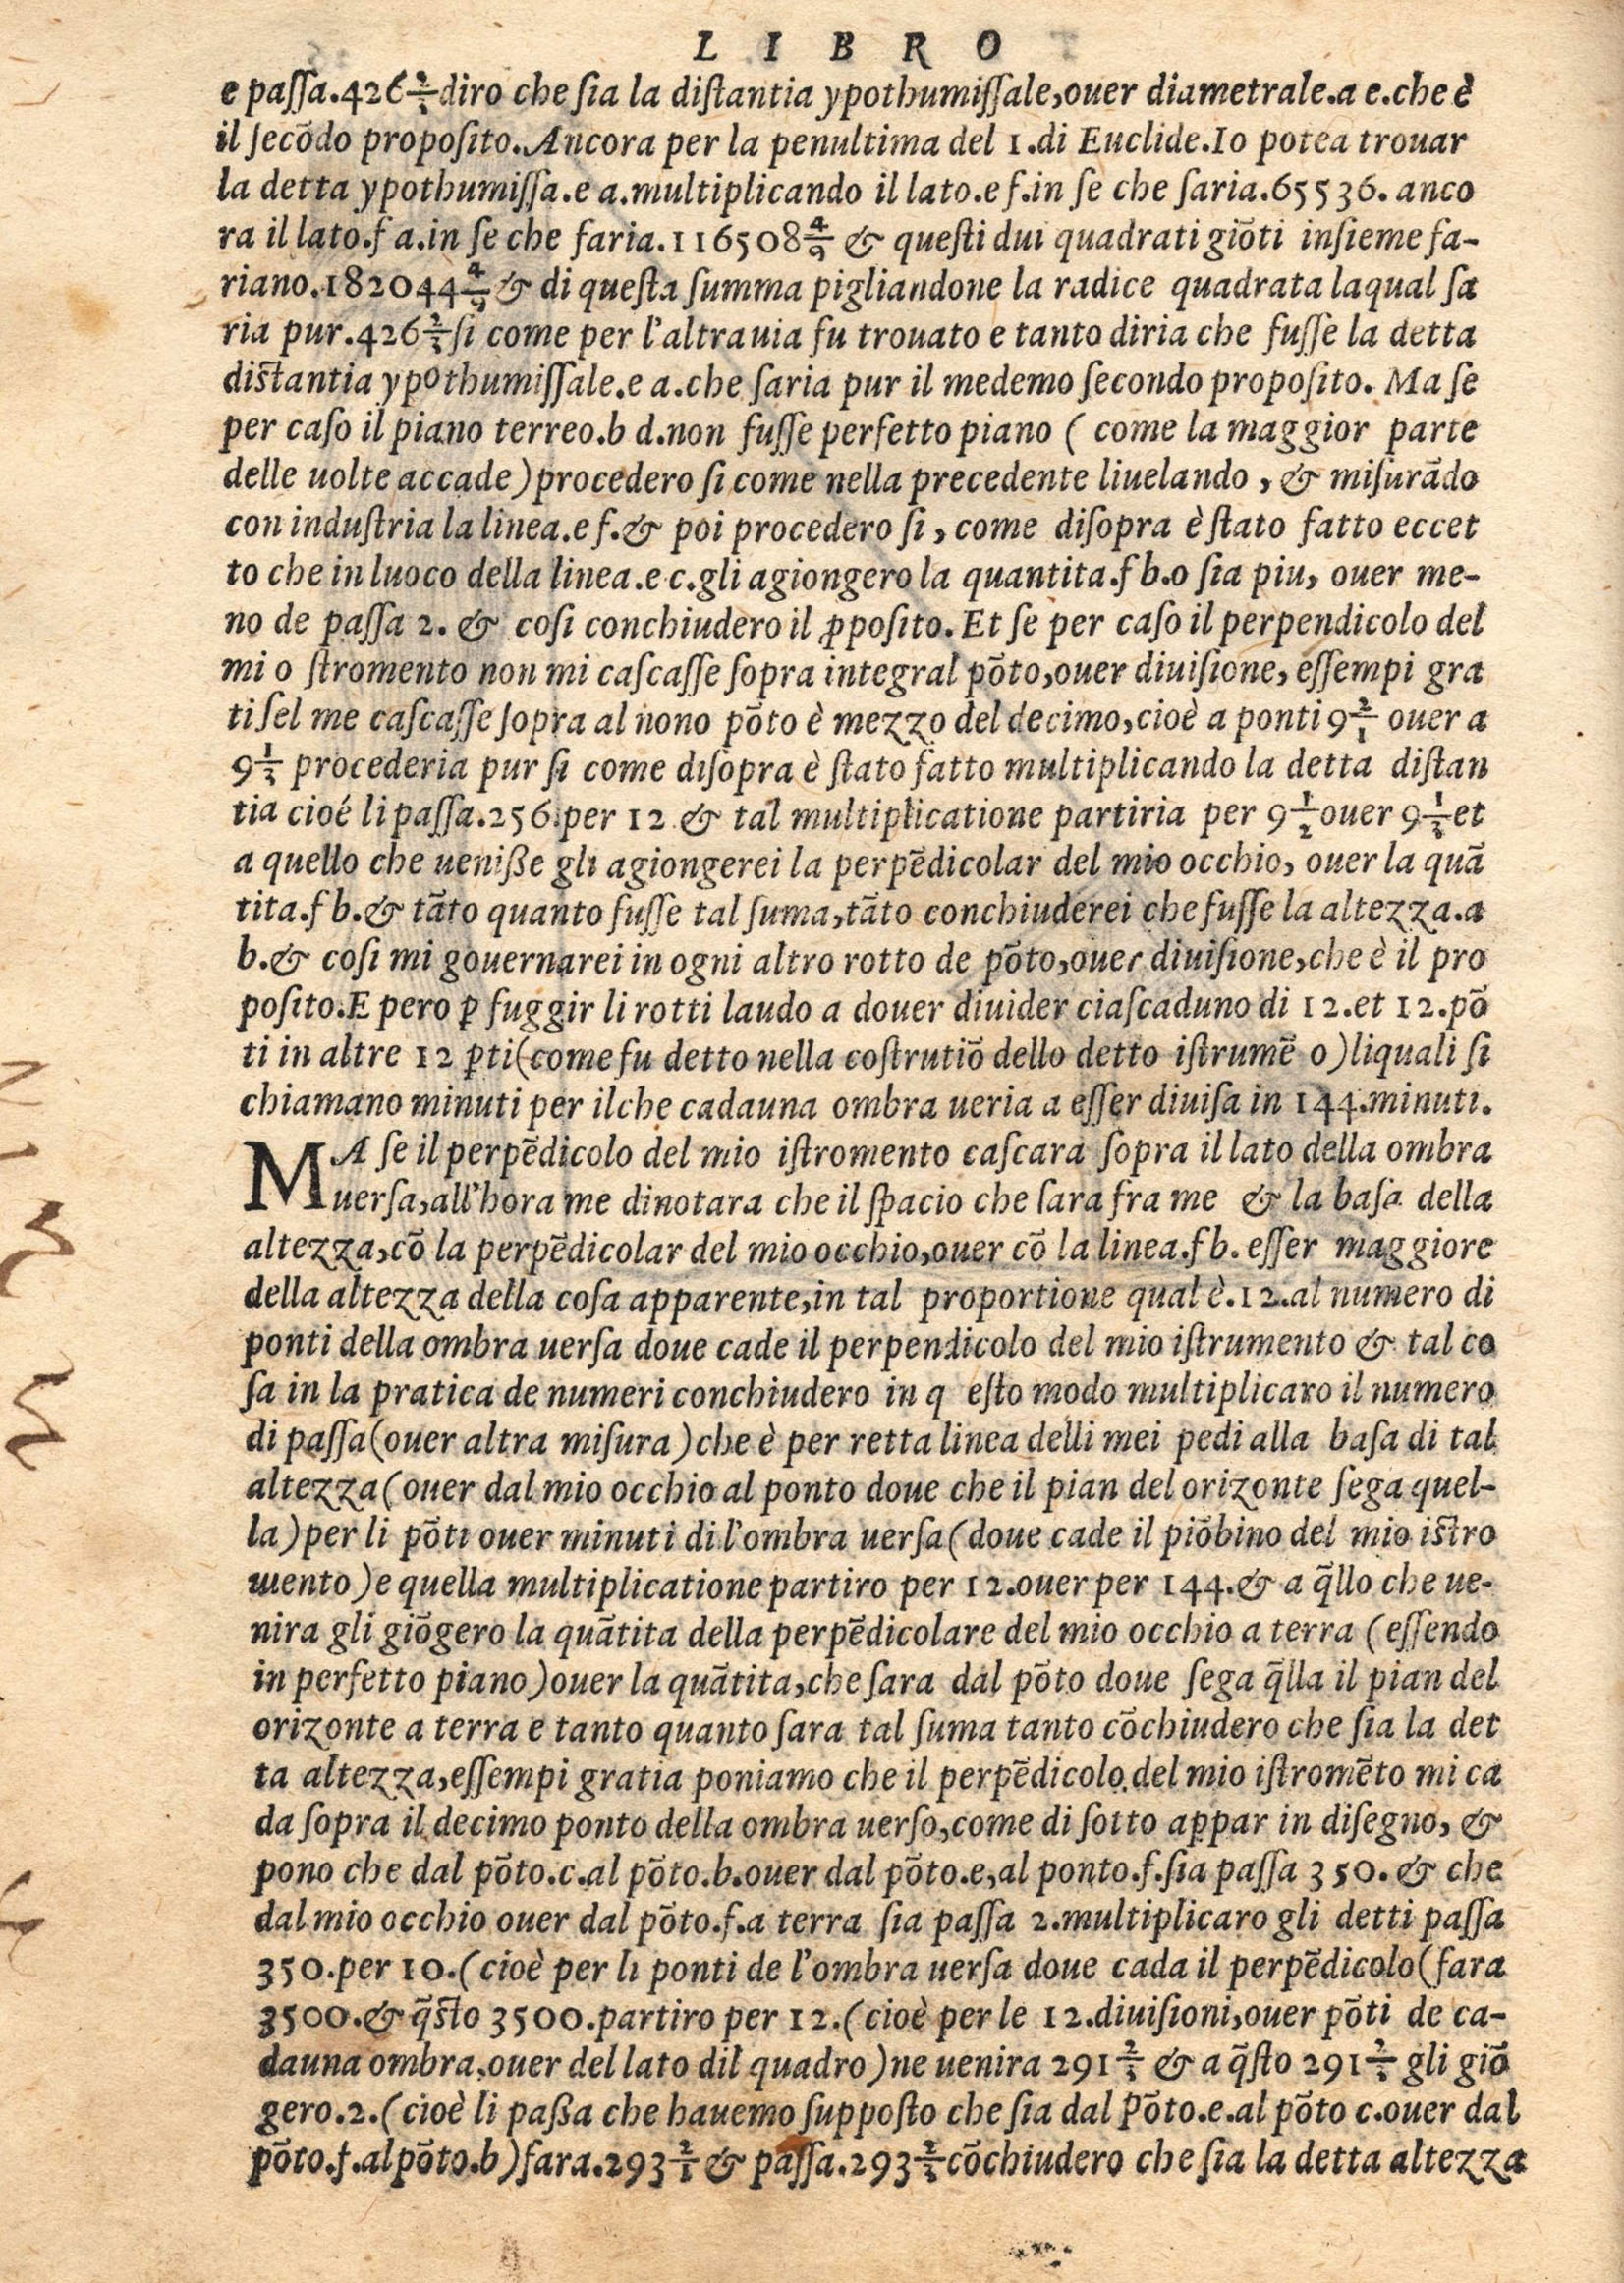 L I B R O
e paſſa.426 2/3 diro che ſia la diſtantia ypothumiſſale,ouer diametrale.a e.che è
il ſecōdo propoſito.Ancora per la penultima del 1.di Euclide.Io potea trouar
la detta ypothumiſſa.e a.multiplicando il lato.e f.in ſe che ſaria.65536. anco
ra il lato.f a.in ſe che faria.116508 4/9 & queſti dui quadrati giōti inſieme fa-
riano.182044 4/9 & di queſta ſumma pigliandone la radice quadrata laqual ſa
ria pur.426 2/3 ſi come per l'altra uia fu trouato e tanto diria che fuſſe la detta
diſtantia ypothumiſſale.e a.che ſaria pur il medemo ſecondo propoſito. Ma ſe
per caſo il piano terreo.b d.non fuſſe perfetto piano ( come la maggior parte
delle uolte accade)procedero ſi come nella precedente liuelando , & miſurādo
con induſtria la linea.e f.& poi procedero ſi , come diſopra è ſtato fatto eccet
to che in luoco della linea.e c.gli agiongero la quantita.f b.o ſia piu, ouer me-
no de paſſa 2. & coſi conchiudero il ꝓpoſito.Et ſe per caſo il perpendicolo del
mi o ſtromento non mi caſcaſſe ſopra integral pōto,ouer diuiſione, eſſempi gra
ti ſel me caſcaſſe ſopra al nono pōto è mezzo del decimo,cioè a ponti 9 2/1 ouer a
9 1/3 procederia pur ſi come diſopra è ſtato fatto multiplicando la detta diſtan
tia cioé li paſſa.256.per 12 & tal multiplicatione partiria per 9 1/2 ouer 9 1/3 et
a quello che ueniße gli agiongerei la perpēdicolar del mio occhio, ouer la quā
tita.f b.& tāto quanto fuſſe tal ſuma,tāto conchiuderei che fuſſe la altezza.a
b.& coſi mi gouernarei in ogni altro rotto de pōto,ouer diuiſione,che è il pro
poſito.E pero ꝑ fuggir li rotti laudo a douer diuider ciaſcaduno di 12.et 12.pō
ti in altre 12 ꝑti(come fu detto nella coſtrutiō dello detto iſtrumē o)liquali ſi
chiamano minuti per ilche cadauna ombra ueria a eſſer diuiſa in 144.minuti.
MA ſe il perpēdicolo del mio iſtromento caſcara ſopra il lato della ombra
uerſa,all'hora me dinotara che il ſpacio che ſara fra me & la baſa della
altezza,cō la perpēdicolar del mio occhio,ouer cō la linea.f b. eſſer maggiore
della altezza della coſa apparente,in tal proportione qual è.12.al numero di
ponti della ombra uerſa doue cade il perpendicolo del mio iſtrumento & tal co
ſa in la pratica de numeri conchiudero in q eſto modo multiplicaro il numero
di paſſa(ouer altra miſura)che è per retta linea delli mei pedi alla baſa di tal
altezza(ouer dal mio occhio al ponto doue che il pian del orizonte ſega quel-
la)per li pōti ouer minuti di l'ombra uerſa(doue cade il piōbino del mio iſtro
mento)e quella multiplicatione partiro per 12.ouer per 144.& a q̄llo che ue-
nira gli giōgero la quātita della perpēdicolare del mio occhio a terra (eſſendo
in perfetto piano)ouer la quātita,che ſara dal pōto doue ſega q̄lla il pian del
orizonte a terra e tanto quanto ſara tal ſuma tanto cōchiudero che ſia la det
ta altezza,eſſempi gratia poniamo che il perpēdicolo del mio iſtromēto mi ca
da ſopra il decimo ponto della ombra uerſo,come di ſotto appar in diſegno, &
pono che dal pōto.c.al pōto.b.ouer dal pōto.e,al ponto.f.ſia paſſa 350. & che
dal mio occhio ouer dal pōto.f.a terra ſia paſſa 2.multiplicaro gli detti paſſa
350.per 10.(cioè per li ponti de l'ombra uerſa doue cada il perpēdicolo(fara
3500.& q̄ſto 3500.partiro per 12.(cioè per le 12.diuiſioni,ouer pōti de ca-
dauna ombra,ouer del lato dil quadro)ne uenira 291 2/3 & a q̄ſto 291 2/3 gli giō
gero.2.(cioè li paßa che hauemo ſuppoſto che ſia dal pōto.e.al pōto c.ouer dal
pōto.f.al pōto.b)fara.293 2/3 & paſſa.293 2/3 cōchiudero che ſia la detta altezza